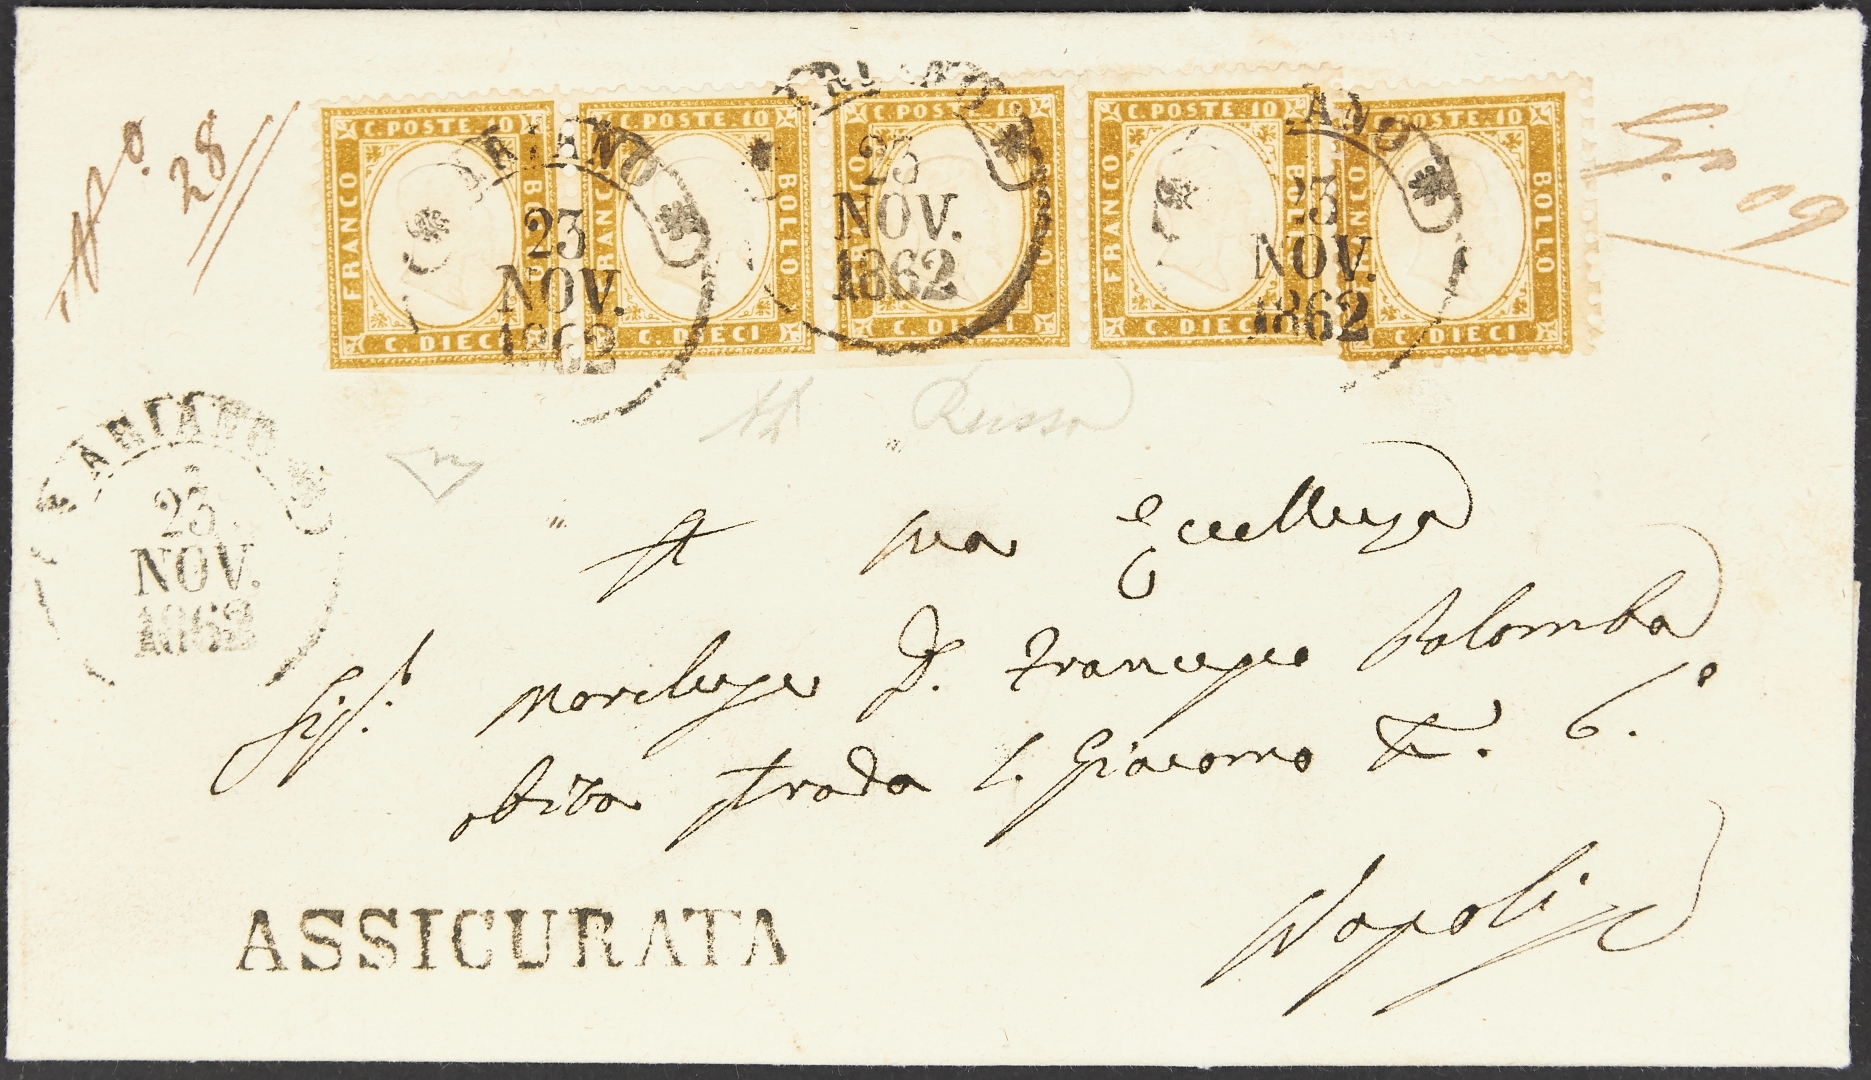 C. POSTE. 10 C. POSTE. 10 C. POSTE. 10 C. POSTE. 10 C. POSTE. 10
FRANCO BOLLO FRANCO BOLLO FRANCO BOLLO FRANCO BOLLO FRANCO BOLLO
C. DIECI C. DIECI C. DIECI C. DIECI C. DIECI
ARIANO
23
NOV.
1862
ARIANO
23
NOV.
1862
ANO
23
NOV.
1862
N.º
28
Russo
ARIANO
23
NOV.
1862
A sua Eccellenza
Sig.r Marchese D. Francesco Palomba
strada S. Giacomo N. 6.
Napoli
ASSICURATA